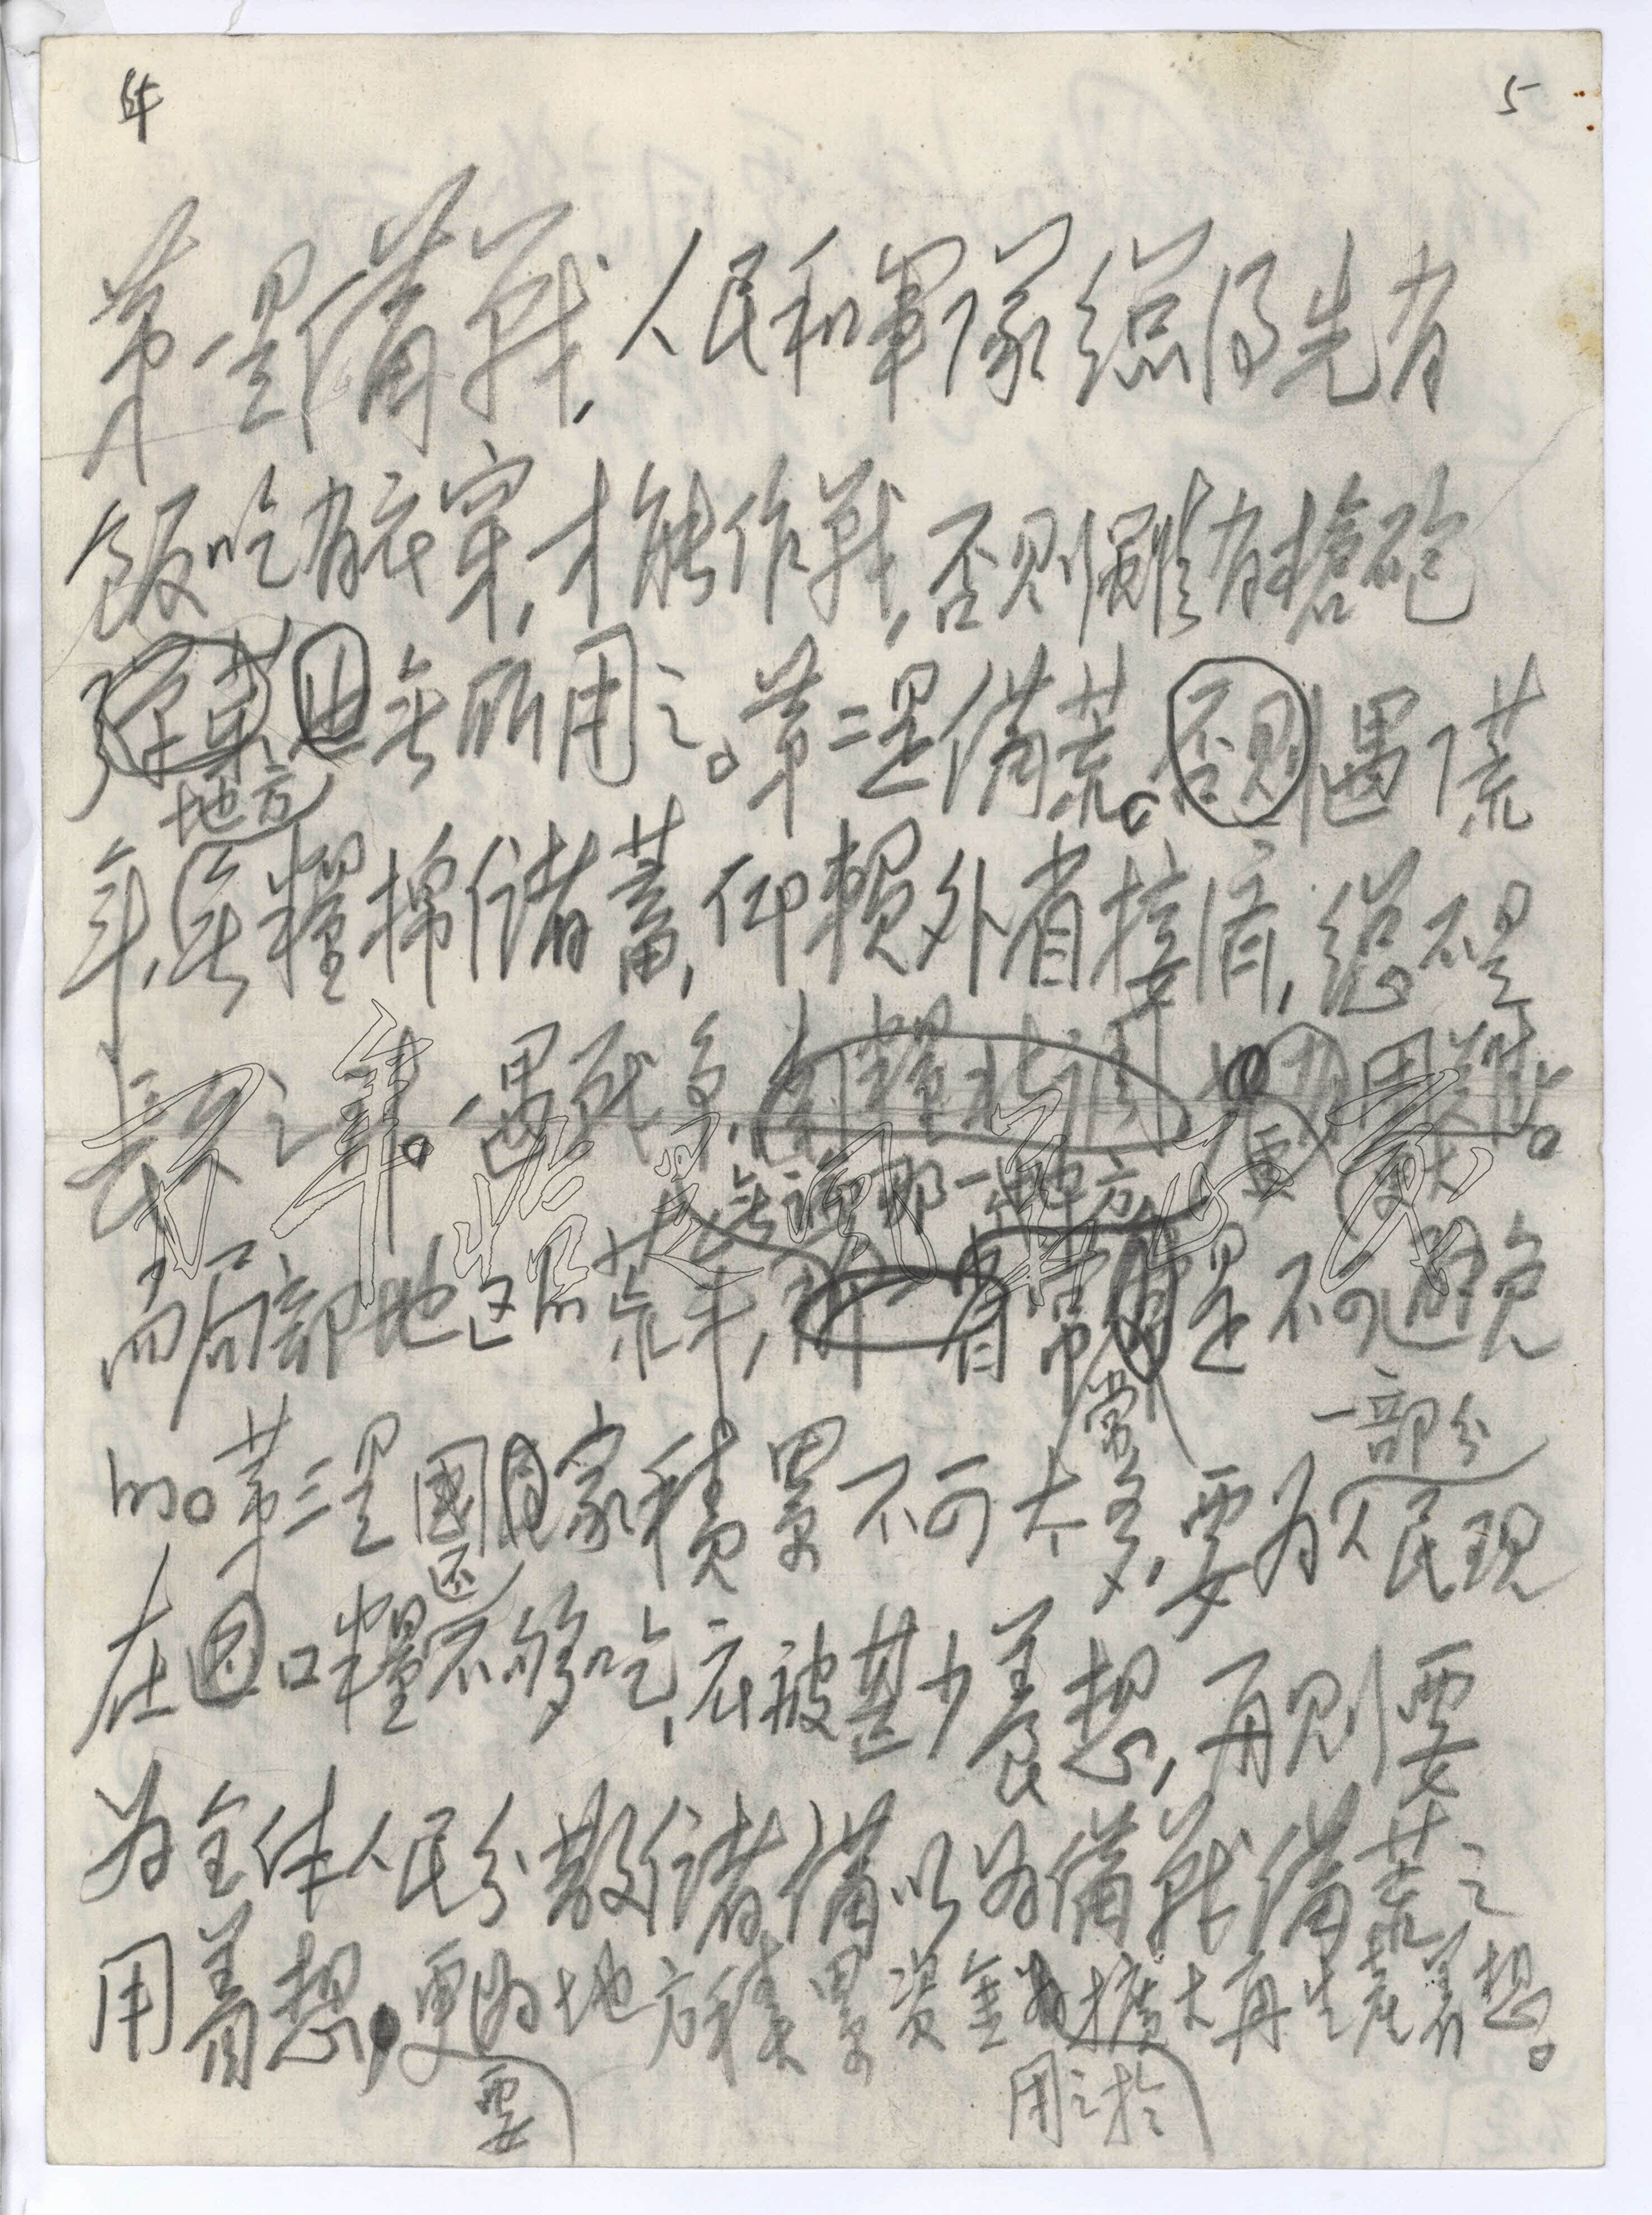 5
第一是備戰，人民和軍隊總得先有
飯吃有衣穿，才能作戰，否則雖有槍砲
也無所用之。第二是備荒。否則遇了荒
地方
年，無糧棉儲蓄，仰賴外省接濟，總不是
長久之策。一遇戰爭，南糧北調 困難更大。
無論那一
而局部地區的荒年，省常常是不可避免
的。第三是國家積累不可太多，要為一部分人民現
在口糧還不够吃，衣被甚少着想，再則要
為全体人民分散儲備以為備戰備荒之
用着想，更要為地方積累資金用之於擴大再生產着想。